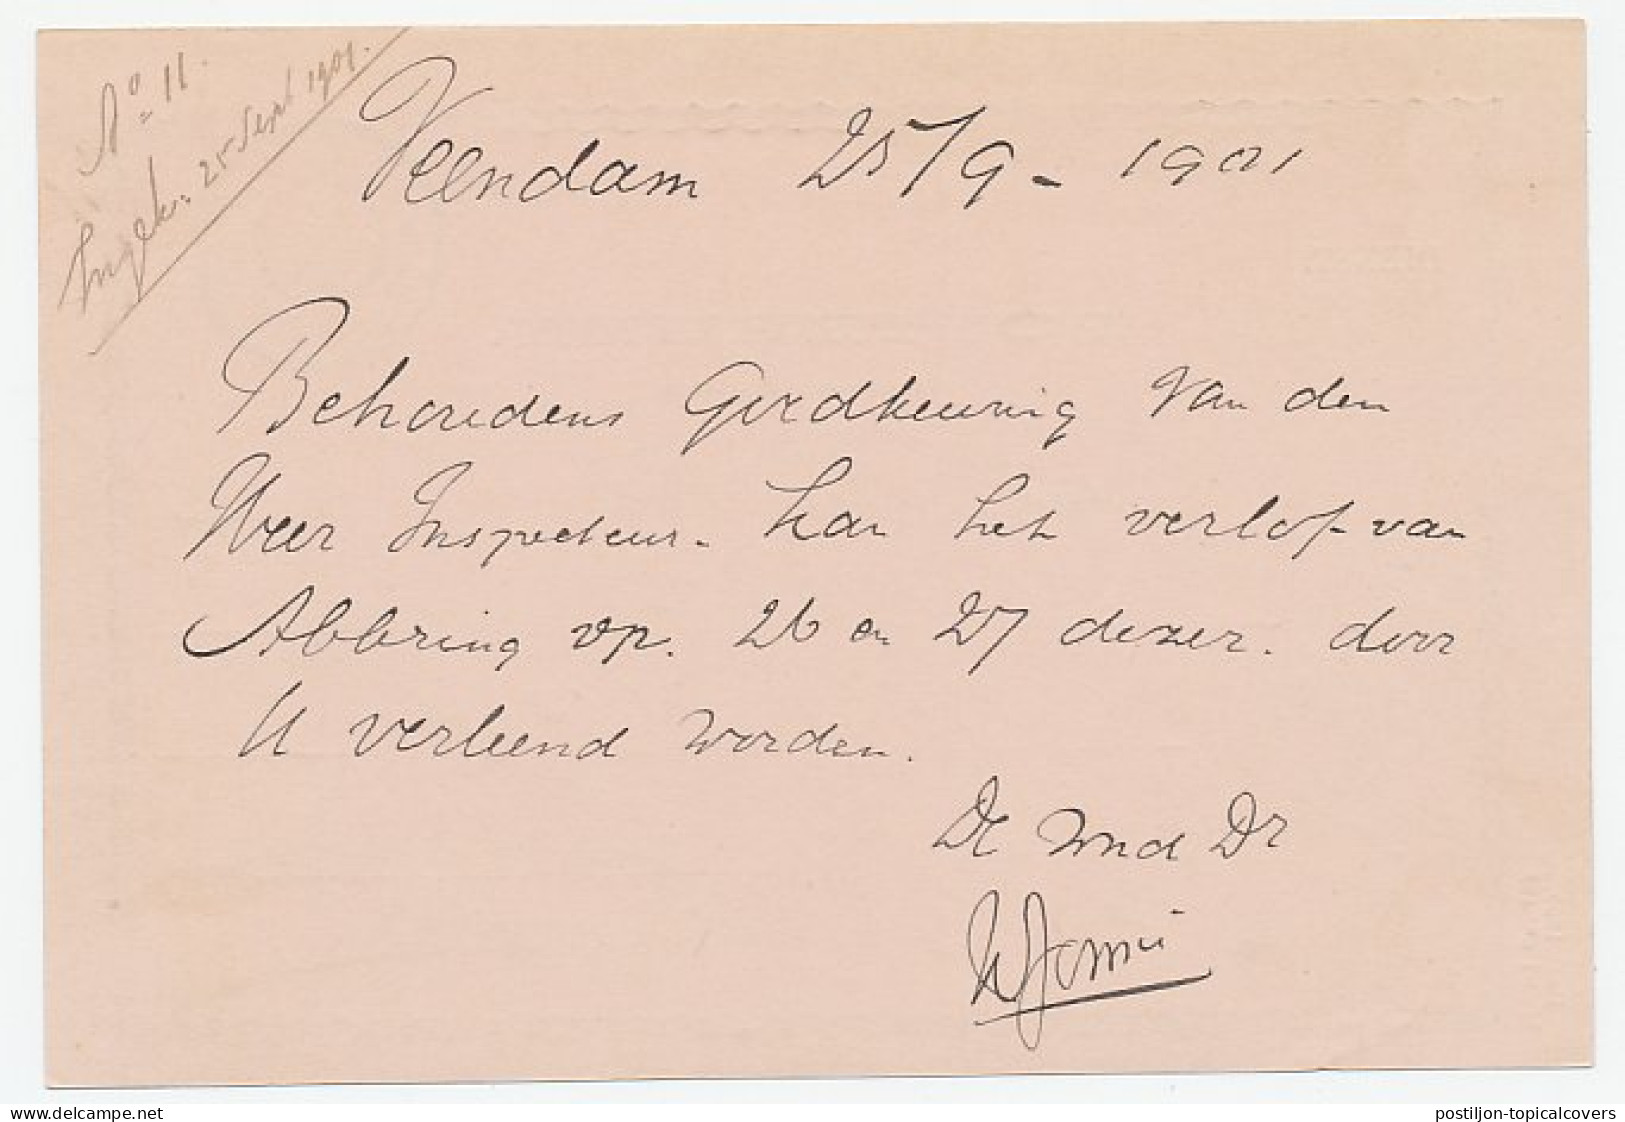 No 11.
Ingek. 25 Sept 1901.
Veendam 25/9 - 1901
Behoudens Goedkeuring van den
Heer Inspecteur. kan het verlof van
Abbring op. 26 en 27 dezer. door
U verleend worden.
De wnd Dr
delcampe.net
postiljon-topicalcovers